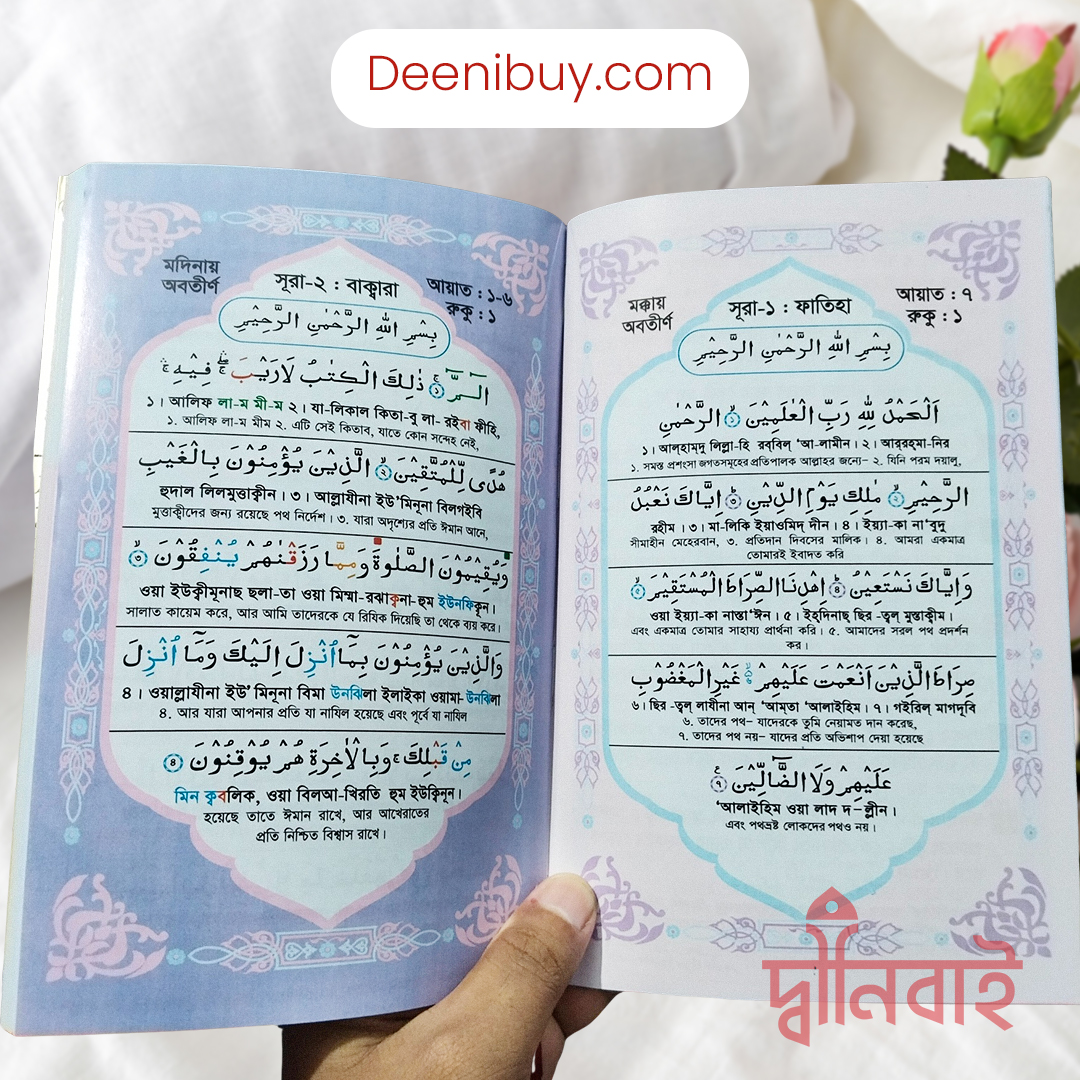 Deenibuy.com
মক্কায়
অবতীর্ণ
সূরা-১ : ফাতিহা
আয়াত : ৭
রুকু : ১
بِسْمِ اللّٰهِ الرَّحْمٰنِ الرَّحِيْمِ
اَلْحَمْدُ لِلّٰهِ رَبِّ الْعٰلَمِيْنَ ۙ﴿১﴾ الرَّحْمٰنِ
১। আল্হাম্দু লিল্লা-হি রব্বিল্ ‘আ-লামীন। ২। আর্‌রহ্মা-নির
১. সমস্ত প্রশংসা জগতসমূহের প্রতিপালক আল্লাহর জন্যে– ২. যিনি পরম দয়ালু,
الرَّحِيْمِ ۙ﴿২﴾ مٰلِكِ يَوْمِ الدِّيْنِ ؕ﴿৩﴾ اِيَّاكَ نَعْبُدُ
রহীম । ৩। মা-লিকি ইয়াওমিদ্ দীন। ৪। ইয়্যা-কা না‘বুদু
সীমাহীন মেহেরবান, ৩. প্রতিদান দিবসের মালিক। ৪. আমরা একমাত্র
তোমারই ইবাদত করি
وَ اِيَّاكَ نَسْتَعِيْنُ ؕ﴿৪﴾ اِهْدِنَا الصِّرَاطَ الْمُسْتَقِيْمَ ۙ﴿৫﴾
ওয়া ইয়্যা-কা নাস্তা‘ঈন। ৫। ইহ্দিনাছ্ ছির -ত্বল্ মুস্তাক্বীম।
এবং একমাত্র তোমার সাহায্য প্রার্থনা করি। ৫. আমাদের সরল পথ প্রদর্শন
কর।
صِرَاطَ الَّذِيْنَ اَنْعَمْتَ عَلَيْهِمْ ۙ﴿৬﴾ غَيْرِ الْمَغْضُوْبِ
৬। ছির -ত্বল্ লাযীনা আন্ ‘আম্তা ‘আলাইহিম। ৭। গইরিল্ মাগদূবি
৬. তাদের পথ– যাদেরকে তুমি নেয়ামত দান করেছ,
৭. তাদের পথ নয়– যাদের প্রতি অভিশাপ দেয়া হয়েছে
عَلَيْهِمْ وَلَا الضَّآلِّيْنَ ﴿৭﴾
‘আলাইহিম ওয়া লাদ দ–ল্লীন।
এবং পথভ্রষ্ট লোকদের পথও নয়।
মদিনায়
অবতীর্ণ
সূরা-২ : বাক্বারা
আয়াত : ১-৬
রুকু : ১
بِسْمِ اللّٰهِ الرَّحْمٰنِ الرَّحِيْمِ
الٓمّٓ ۚ﴿১﴾ ذٰلِكَ الْكِتٰبُ لَا رَيْبَ ۛۖ فِيْهِ ۛۚ
১। আলিফ লা-ম মী-ম ২। যা-লিকাল কিতা-বু লা- রইবা ফীহি,
১. আলিফ লা-ম মীম ২. এটি সেই কিতাব, যাতে কোন সন্দেহ নেই,
هُدًى لِّلْمُتَّقِيْنَ ۙ﴿২﴾ الَّذِيْنَ يُؤْمِنُوْنَ بِالْغَيْبِ
হুদাল লিলমুত্তাক্বীন। ৩। আল্লাযীনা ইউ’মিনূনা বিলগইবি
মুত্তাক্বীদের জন্য রয়েছে পথ নির্দেশ। ৩. যারা অদৃশ্যের প্রতি ঈমান আনে,
وَيُقِيْمُوْنَ الصَّلٰوةَ وَمِمَّا رَزَقْنٰهُمْ يُنْفِقُوْنَ ۙ﴿৩﴾
ওয়া ইউক্বীমূনাছ ছলা-তা ওয়া মিম্মা-রঝাক্বনা-হুম ইউনফিক্বূন।
সালাত কায়েম করে, আর আমি তাদেরকে যে রিযিক দিয়েছি তা থেকে ব্যয় করে।
وَالَّذِيْنَ يُؤْمِنُوْنَ بِمَآ اُنْزِلَ اِلَيْكَ وَمَآ اُنْزِلَ
৪। ওয়াল্লাযীনা ইউ’ মিনূনা বিমা উনঝিলা ইলাইকা ওয়ামা- উনঝিলা
৪. আর যারা আপনার প্রতি যা নাযিল হয়েছে এবং পূর্বে যা নাযিল
مِنْ قَبْلِكَ ۚ وَبِالْاٰخِرَةِ هُمْ يُوْقِنُوْنَ ﴿৪﴾
মিন ক্ববলিক, ওয়া বিলআ-খিরতি হুম ইউক্বিনূন।
হয়েছে তাতে ঈমান রাখে, আর আখেরাতের
প্রতি নিশ্চিত বিশ্বাস রাখে।
দ্বীনিবাই